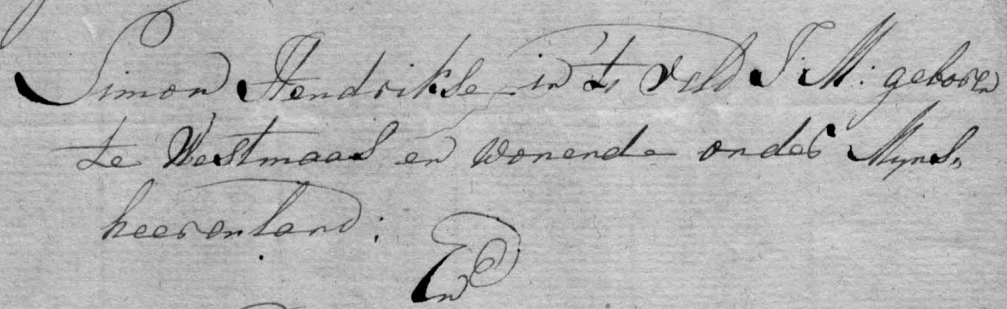 Simon Hendrikse in 't Veld J: M: geboren
te Westmaas en wonende onder Myns„
heerenland;
En